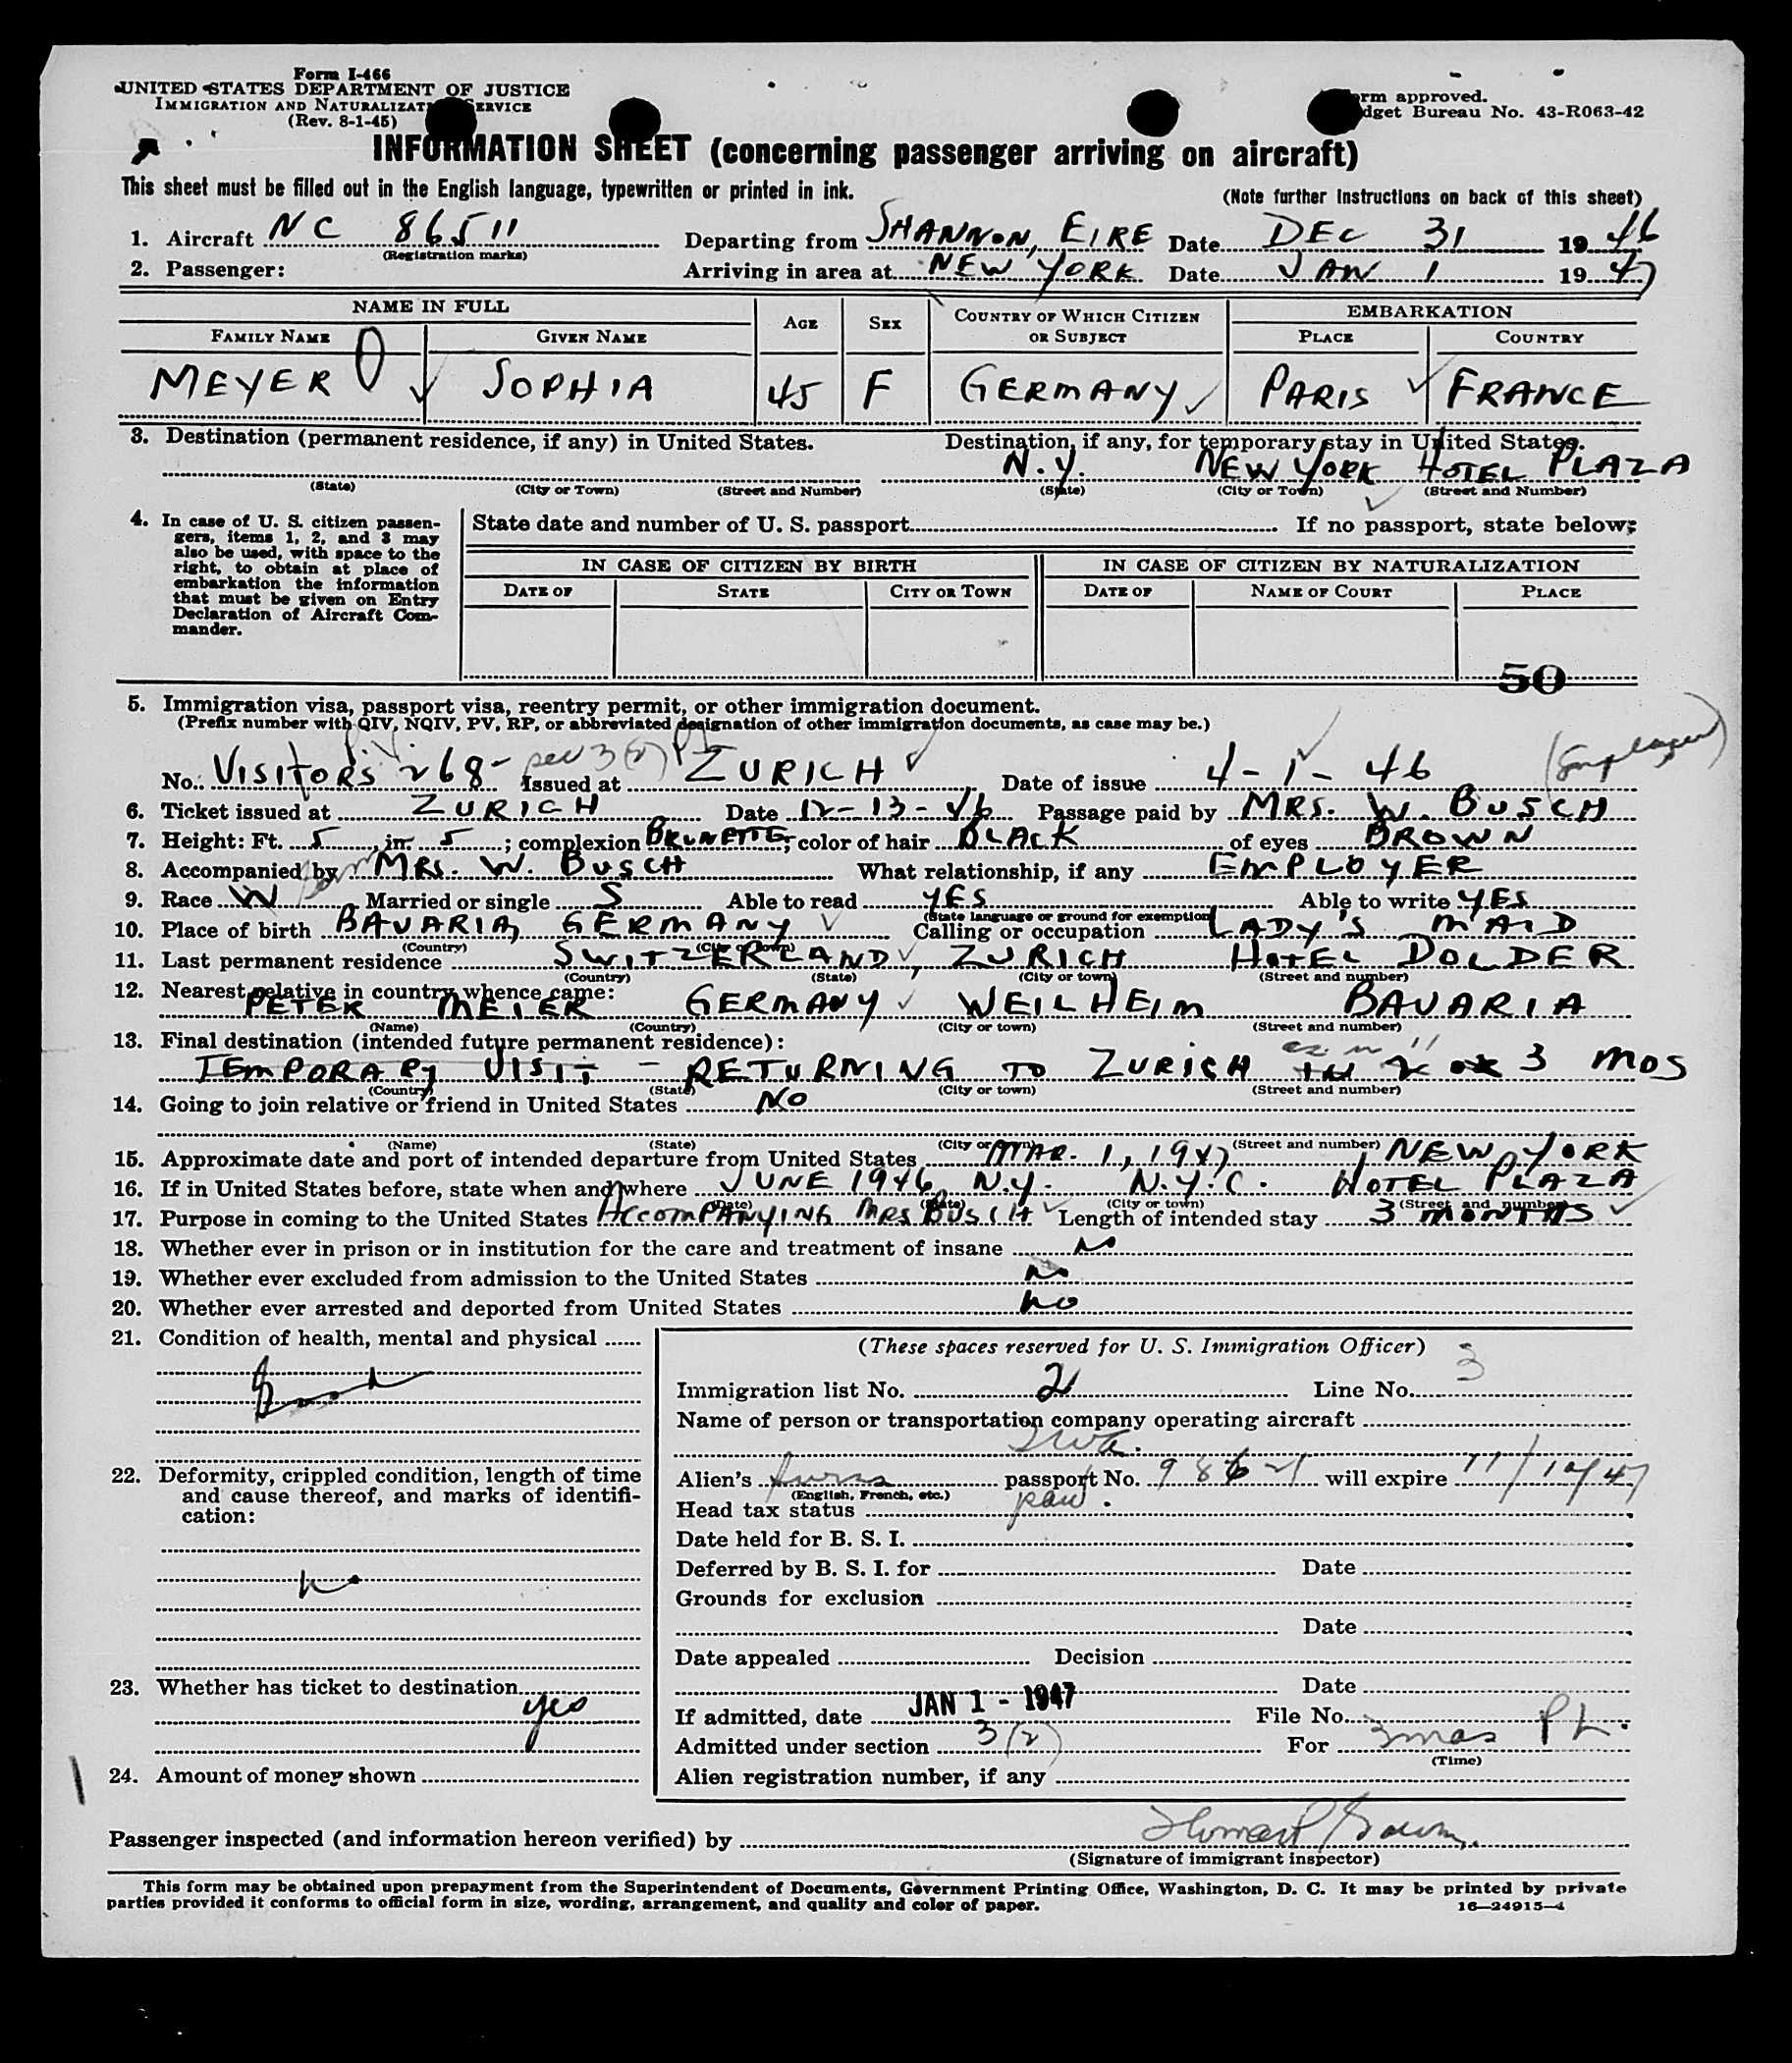 Form I-466
UNITED STATES DEPARTMENT OF JUSTICE
IMMIGRATION AND NATURALIZAT SERVICE
(Rev. 8-1-45)
orm approved.
dget Bureau No. 43-R063-42
INFORMATION SHEET (concerning passenger arriving on aircraft)
This sheet must be filled out in the English language, typewritten or printed in ink.
(Note further instructions on back of this sheet)
1. Aircraft NC 86511 Departing from SHANNON, EIRE Date DEC 31 1946
(Registration marks)
2. Passenger: Arriving in area at NEW YORK Date JAN 1 1947
NAME IN FULL AGE SEX COUNTRY OF WHICH CITIZEN OR SUBJECT EMBARKATION
FAMILY NAME GIVEN NAME PLACE COUNTRY
MEYER SOPHIA 45 F GERMANY PARIS FRANCE
3. Destination (permanent residence, if any) in United States. Destination, if any, for temporary stay in United States.
N.Y. NEW YORK HOTEL PLAZA
(State) (City or Town) (Street and Number) (State) (City or Town) (Street and Number)
4. In case of U. S. citizen passengers, items 1, 2, and 3 may also be used, with space to the right, to obtain at place of embarkation the information that must be given on Entry Declaration of Aircraft Commander.
State date and number of U. S. passport If no passport, state below:
IN CASE OF CITIZEN BY BIRTH IN CASE OF CITIZEN BY NATURALIZATION
DATE OF STATE CITY OR TOWN DATE OF NAME OF COURT PLACE
50
5. Immigration visa, passport visa, reentry permit, or other immigration document.
(Prefix number with QIV, NQIV, PV, RP, or abbreviated designation of other immigration documents, as case may be.)
No. VISITORS 268 Issued at ZURICH Date of issue 4-1-46 (Employer)
6. Ticket issued at ZURICH Date 12-13-46 Passage paid by MRS. W. BUSCH
7. Height: Ft. 5, in. 5; complexion BRUNETTE; color of hair BLACK of eyes BROWN
8. Accompanied by MRS. W. BUSCH What relationship, if any EMPLOYER
9. Race W Married or single S Able to read YES Able to write YES
(State language or ground for exemption)
10. Place of birth BAVARIA, GERMANY Calling or occupation LADY'S MAID
(Country) (City or Town)
11. Last permanent residence SWITZERLAND, ZURICH HOTEL DOLDER
(Country) (State) (City or town) (Street and number)
12. Nearest relative in country whence came:
PETER MEIER GERMANY WEILHEIM BAVARIA
(Name) (Country) (City or town) (Street and number)
13. Final destination (intended future permanent residence):
TEMPORARY VISIT - RETURNING TO ZURICH 3 MOS
(Country) (State) (City or town) (Street and number)
14. Going to join relative or friend in United States NO
(Name) (State) (City or town) (Street and number)
15. Approximate date and port of intended departure from United States MAR. 1, 1947 NEW YORK
16. If in United States before, state when and where JUNE 1946 N.Y. N.Y.C. HOTEL PLAZA
(Date) (State) (City or town) (Street and number)
17. Purpose in coming to the United States ACCOMPANYING MRS BUSCH Length of intended stay 3 MONTHS
18. Whether ever in prison or in institution for the care and treatment of insane No
19. Whether ever excluded from admission to the United States No
20. Whether ever arrested and deported from United States No
21. Condition of health, mental and physical
Good
22. Deformity, crippled condition, length of time and cause thereof, and marks of identification:
No
23. Whether has ticket to destination
yes
24. Amount of money shown
(These spaces reserved for U. S. Immigration Officer)
Immigration list No. 2 Line No. 3
Name of person or transportation company operating aircraft
TWA.
Alien's Swiss passport No. will expire 11/10/47
(English, French, etc.)
Head tax status
Date held for B. S. I.
Deferred by B. S. I. for Date
Grounds for exclusion
Date
Date appealed Decision
Date
If admitted, date JAN 1 - 1947 File No.
Admitted under section 3(2) For 3 mos P L.
(Time)
Alien registration number, if any
Passenger inspected (and information hereon verified) by
(Signature of immigrant inspector)
This form may be obtained upon prepayment from the Superintendent of Documents, Government Printing Office, Washington, D. C. It may be printed by private
parties provided it conforms to official form in size, wording, arrangement, and quality and color of paper.
16—24915-4